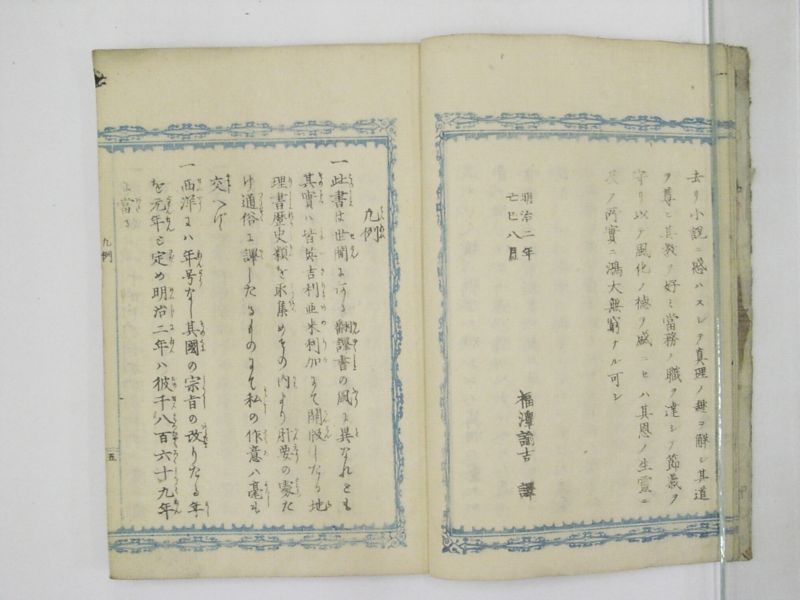 去リ小說ニ惑ハスシテ真理ノ鍵ヲ解シ其道
ヲ尊ヒ其教ヲ好ミ當務ノ職ヲ達シテ節義ヲ
守リ以テ風化ノ德ヲ盛ニセハ其恩ノ生靈ニ
及フ所實ニ鴻大無窮ナル可シ
明治二年
己巳八月
福澤諭吉 譯
凡例
一此書は世間にある飜譯書の風に異なれとも
其實ハ皆英吉利亞米利加にて開版したる地
理書歷史類を取集めその内より肝要の處た
け通俗に譯したるものにて私の作意ハ毫も
交へす
一西洋にハ年号なし其國の宗旨の改りたる年
を元年と定め明治二年ハ彼千八百六十九年
に當る
凡例
五